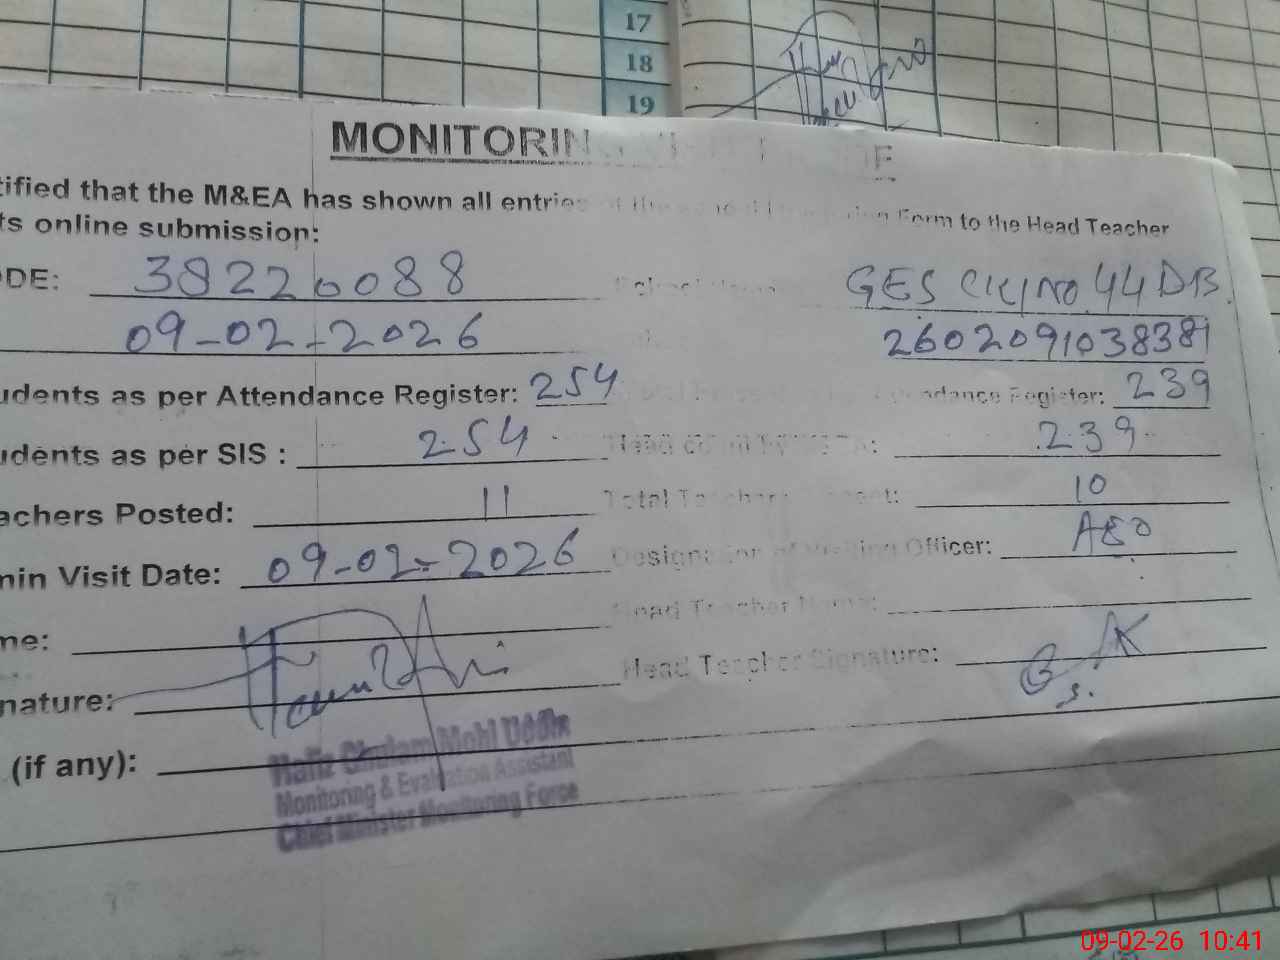 17
18
19
MONITORIN
tified that the M&EA has shown all entries of the Form to the Head Teacher
ts online submission:
DE: 38220088 GES CK/NO 44 DB
09-02-2026 2602091038381
udents as per Attendance Register: 254 Attendance Register: 239
udents as per SIS : 254 Head 239
achers Posted: 11 Total Teachers 10
min Visit Date: 09-02-2026 Designation of Visiting Officer: AEO
me: Head Teacher Name:
nature: Head Teacher Signature:
(if any):
Hafiz Ghulam Mohi Uddin
Monitoring & Evaluation Assistant
Chief Minister Monitoring Force
09-02-26 10:41